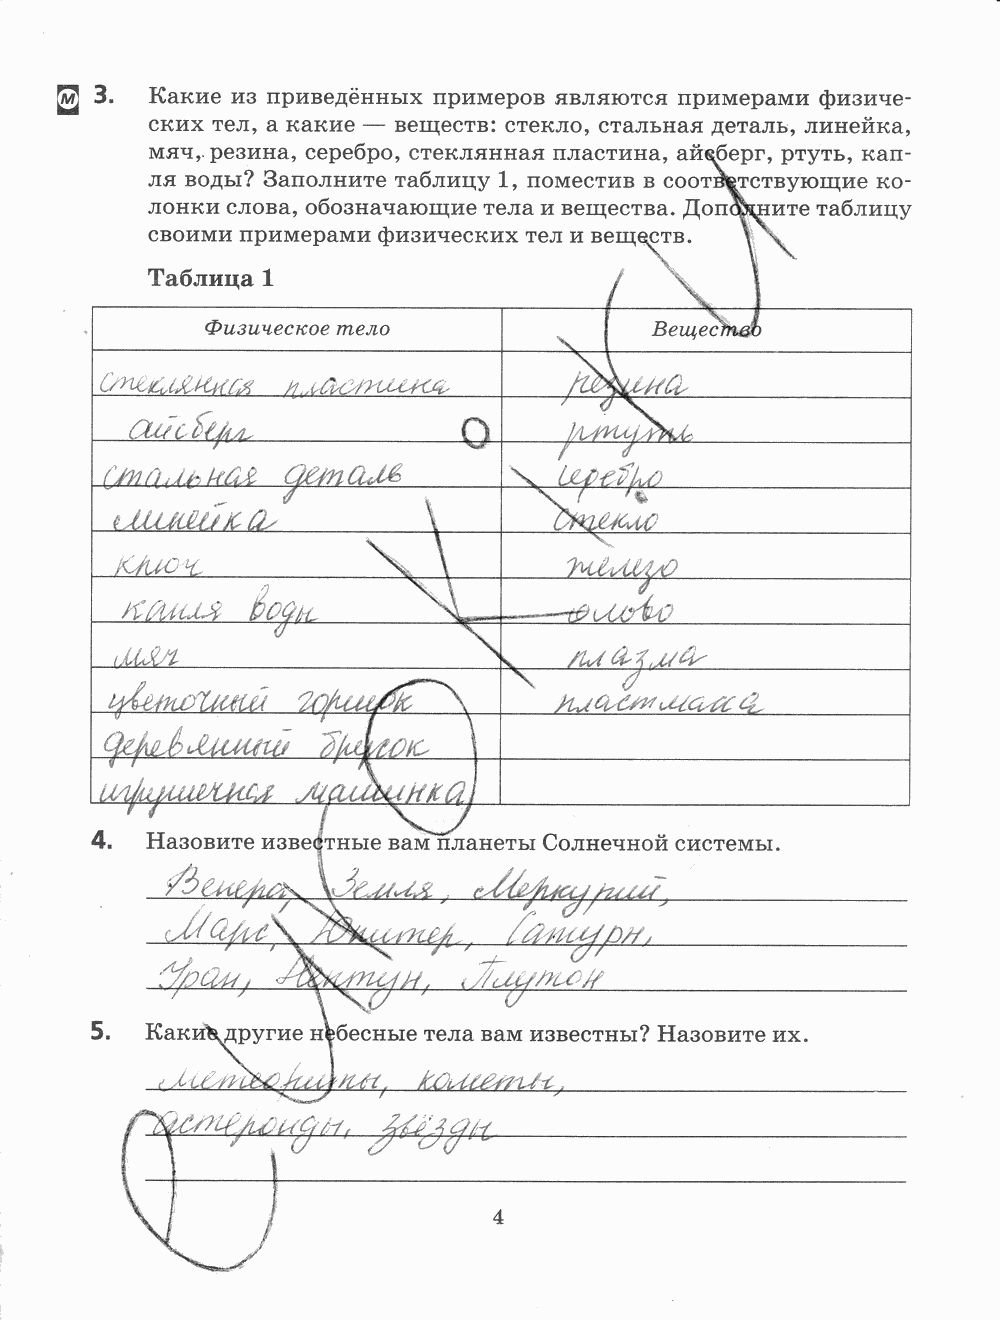 М 3. Какие из приведённых примеров являются примерами физиче-
ских тел, а какие — веществ: стекло, стальная деталь, линейка,
мяч, резина, серебро, стеклянная пластина, айсберг, ртуть, кап-
ля воды? Заполните таблицу 1, поместив в соответствующие ко-
лонки слова, обозначающие тела и вещества. Дополните таблицу
своими примерами физических тел и веществ.
Таблица 1
Физическое тело Вещество
стеклянная пластина резина
айсберг ртуть
стальная деталь серебро
линейка стекло
ключ железо
капля воды олово
мяч плазма
цветочный горшок пластмасса
деревянный брусок
игрушечная машинка
4. Назовите известные вам планеты Солнечной системы.
Венера, Земля, Меркурий,
Марс, Юпитер, Сатурн,
Уран, Нептун, Плутон
5. Какие другие небесные тела вам известны? Назовите их.
метеориты, кометы,
астероиды, звёзды
4